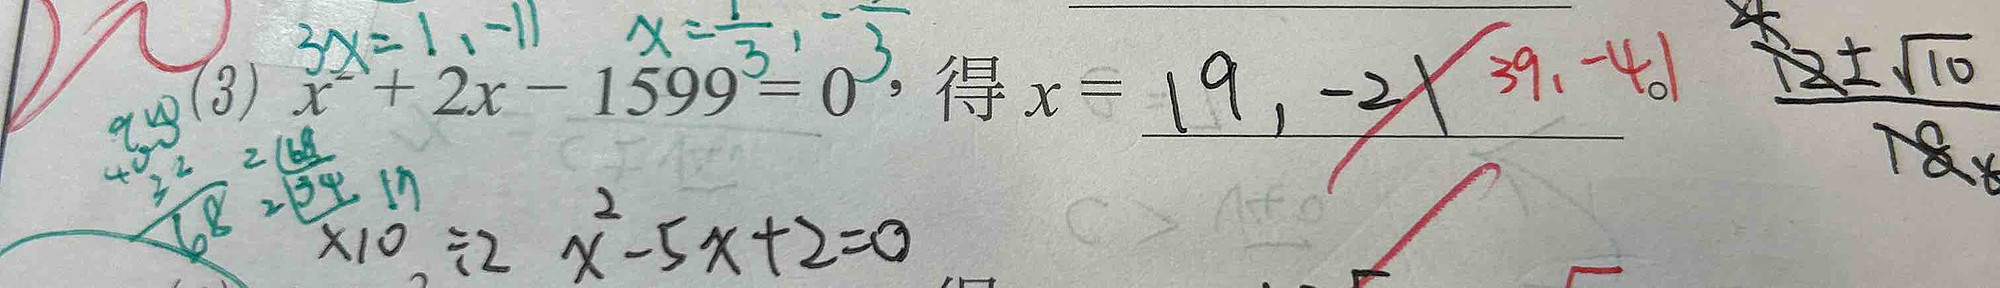 3x=1、-11 x=1/3,
(3) x² + 2x - 1599 = 0, 得 x = 19, -21 39, -41
12±√10
18
2 68
2 34 17
68
×10 ÷2 x²-5x+2=0